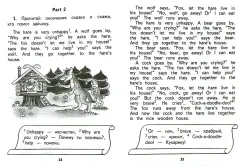 Part 2
1. Прочитай окончание сказки и скажи,
кто помог зайчику.
The hare is very unhappy. A wolf goes
by. "Why are you crying?" he asks the hare.
"The fox doesn't let me live in my house!"
says the hare. "I can help you!" says the
wolf. And they go together to the hare's
house.
Unhappy — несчастен, Why are
you crying? — Почему ты плачешь?
help — помочь.
34
The wolf cries, "Fox, let the hare live in
his house!" "No, wolf, go away! Or I can eat
you!" The wolf runs away.
The hare is very unhappy. A bear goes by.
"Why are you crying?" he asks the hare. "The
fox doesn't let me live in my house!" says
the hare. "I can help you!" says the bear.
And they go together to the hare's house.
The bear says, "Fox, let the hare live in
his house!" "No, bear, go away! Or I can eat
you!" The bear runs away.
A cock goes by. "Why are you crying?" he
asks the hare. "The fox doesn't let me live in
my house!" says the hare. "I can help you!"
says the cock. And they go together to the
hare's house.
The cock says, "Fox, let the hare live in his
house!" "No, cock, go away! Or I can eat
you!" But the cock doesn't run away. He is
very brave. He cries, "Cock-a-doodle-doo!"
The fox runs away from the hare's house.
And now the hare and the cock live together
in the nice wooden house.
Or — или, brave — храбрый,
cries — кричит, "Cock-a-doodle-
doo!" — Кукареку!
35